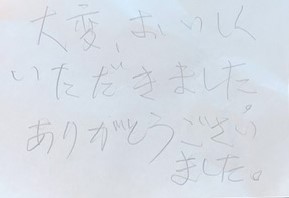 大変、おいしく
いただきました。
ありがとうござい
ました。